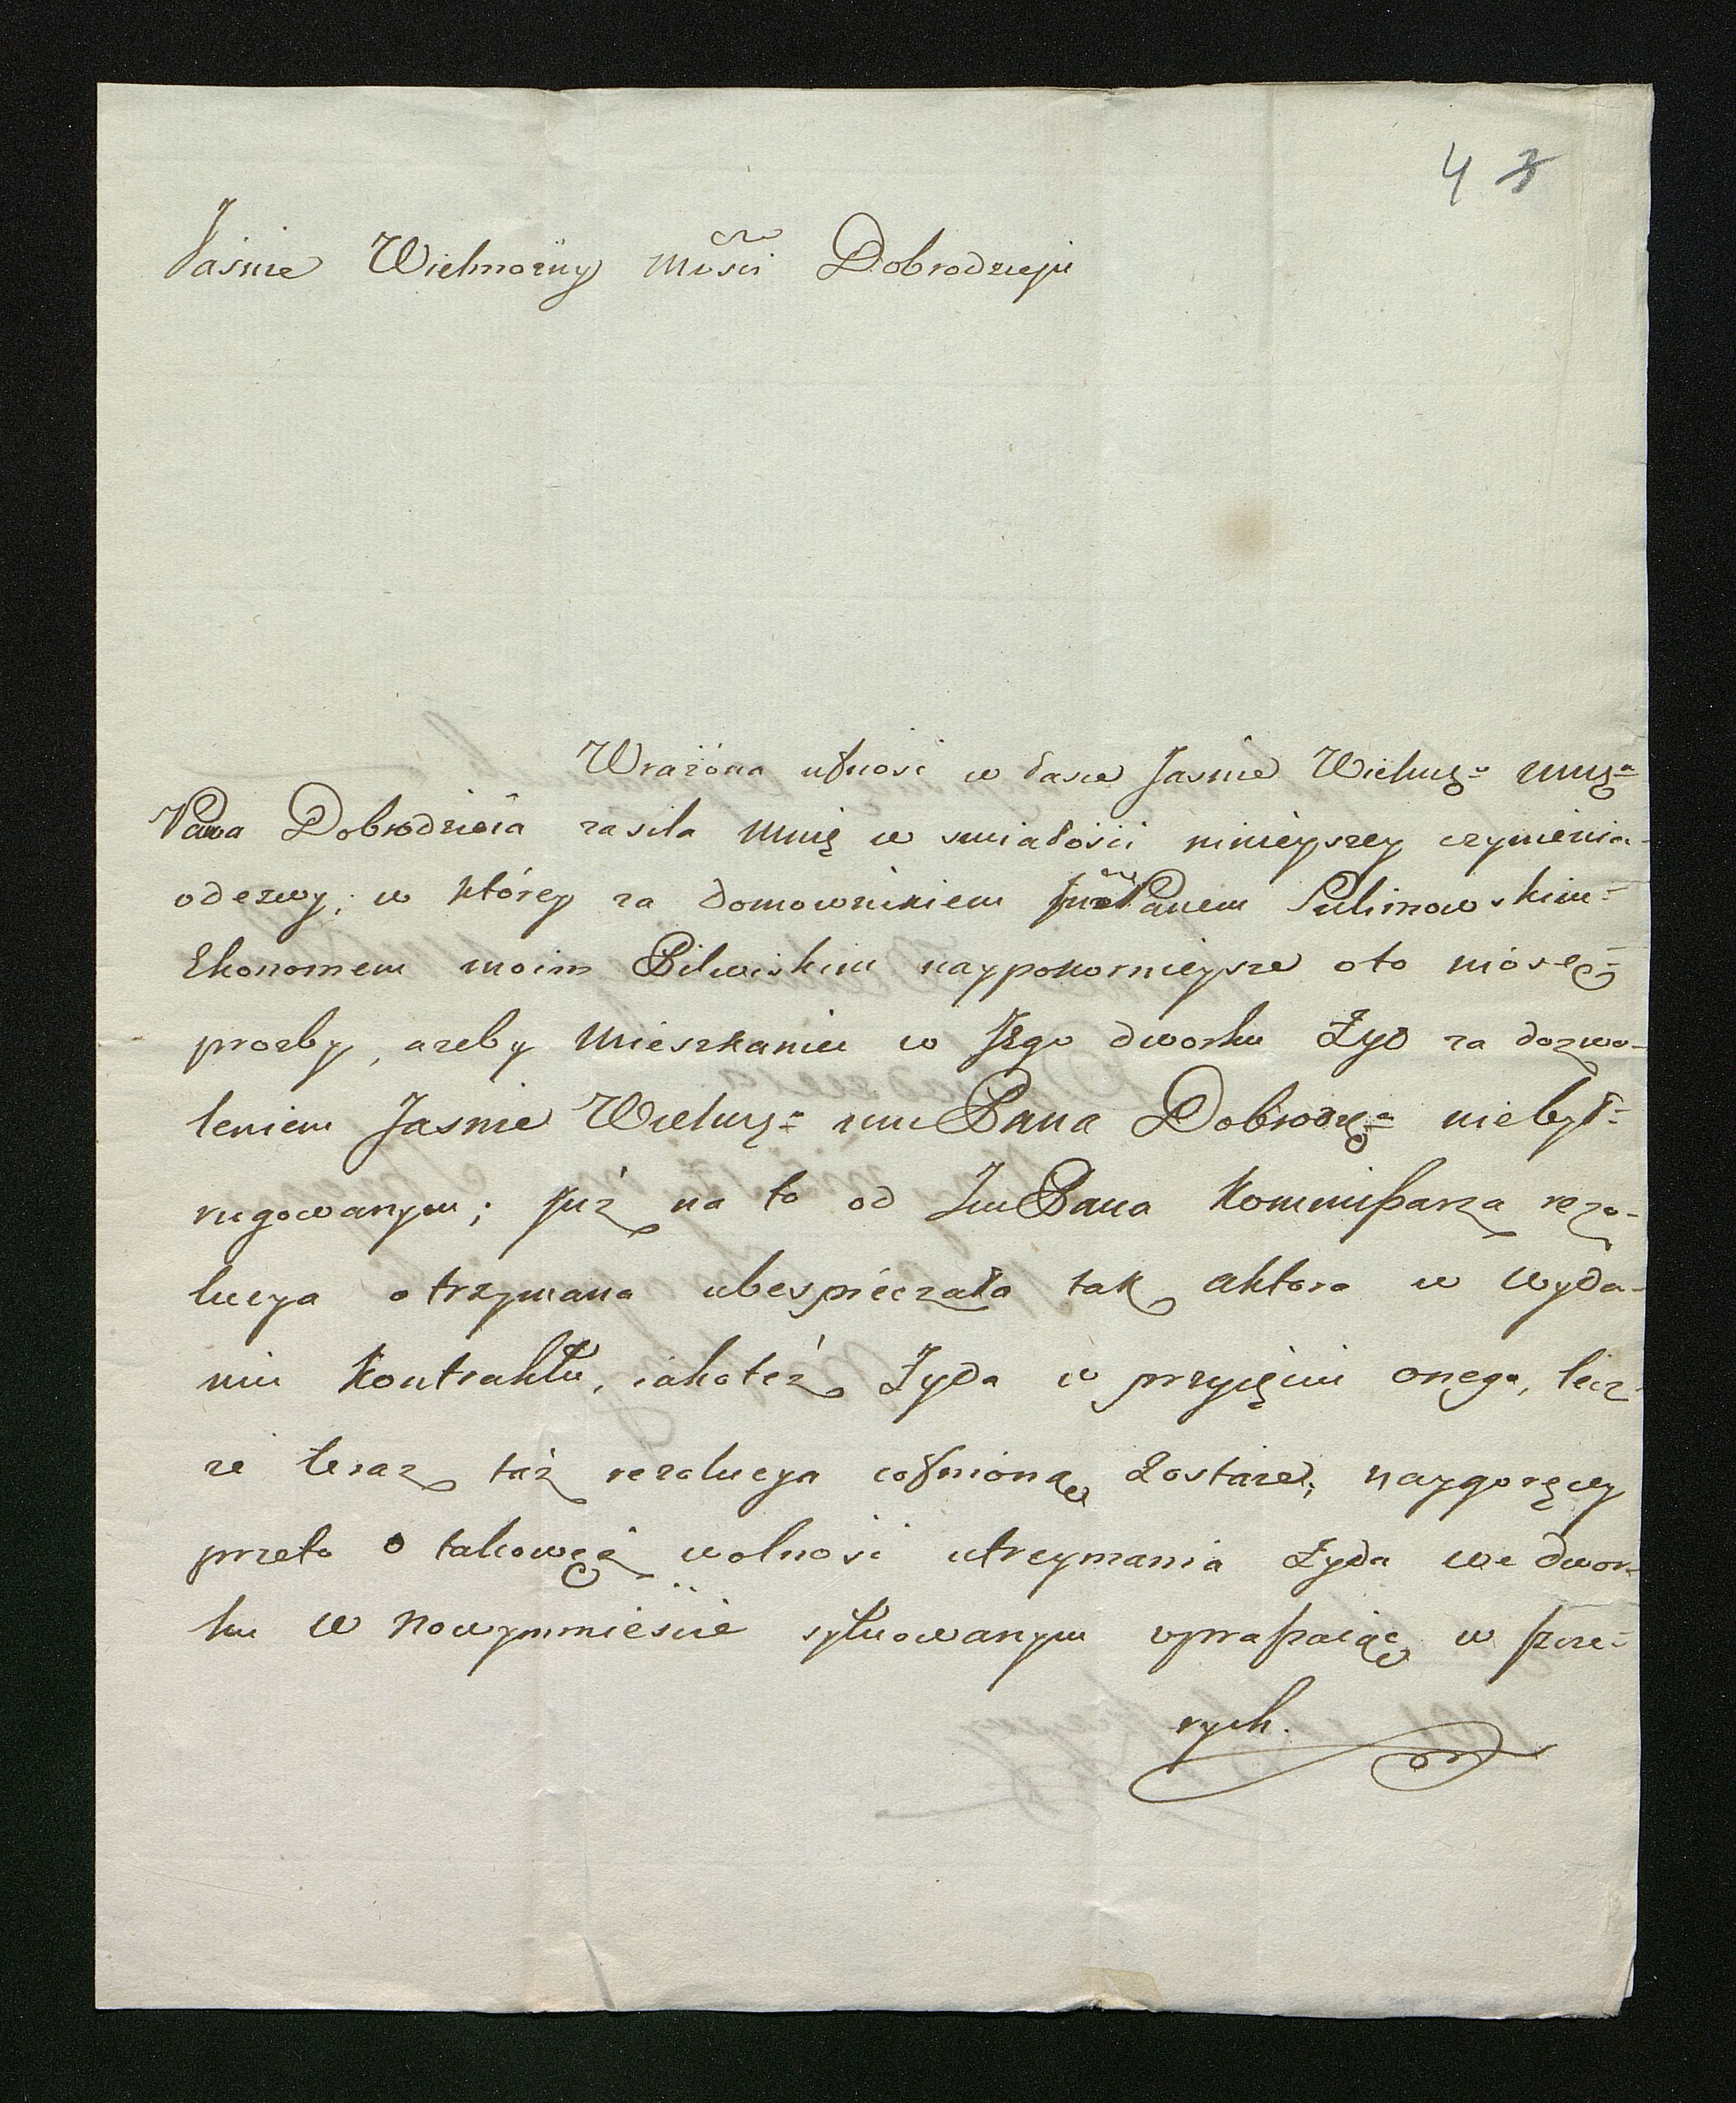 4 3
Jaśnie Wielmożny Mości Dobrodzieju
Wrażóna ufnosć w łasce Jasnie Wielmg=o mmg=a
Pana Dobrodzieia zasila mnię w smiałości ninieyszey czynienia
odezwy; w którey za domownikiem Panem Sulimowskim
Ekonomem moim Bilwiskim naypokornieysze oto niosę
prozby, azeby mieszkaniu w Jego dworku Żyd za dozwo-
leniem Jasnie Wielmg=o mm Pana Dobrodzg=a niebył
rugowanym; Już na to od Jm Pana Kommissarza rezo-
lucya otrzymana ubespieczała tak Aktora w wyda-
niu Kontraktu, iakoteż Żyda w przyięciu onego, lecz
że teraz taż rezolucya cofnioną zostaie; naygoręcey
przeto o takowąż wolnosć utrzymania Żyda we dwor-
ku w Nowymmieście sytuowanym upraszaiąc, w szcze-
rych.